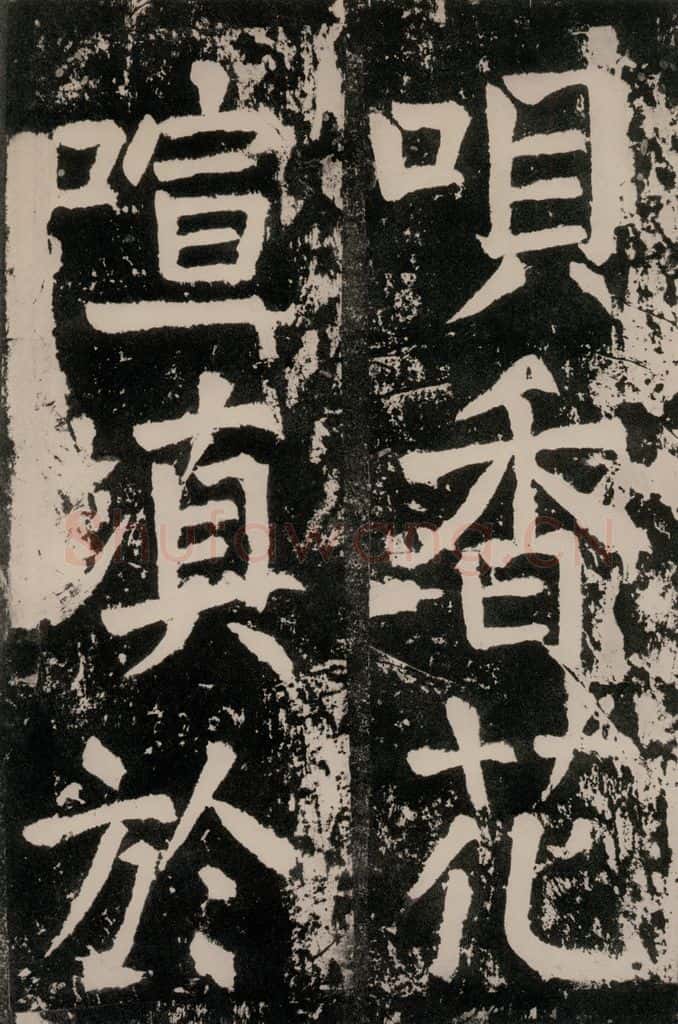 唄香花
喧填於
Shufawang.CN